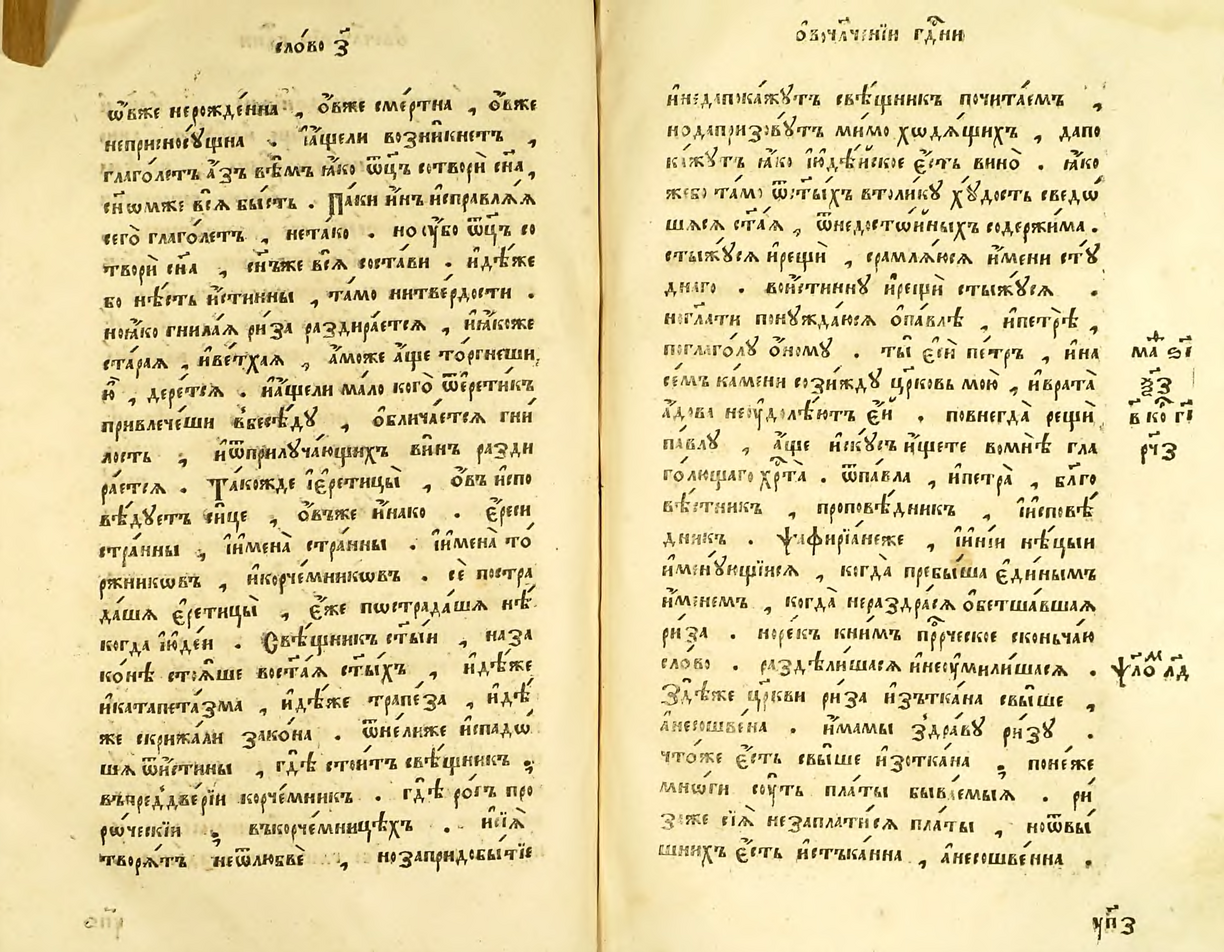 сло́во з҃
ѡ҆́вже нерожде́нна , ѻ҆́вже сме́ртна , ѻ҆́вже
неприсносꙋ́щна . і҆а҆́щели возни́кнетъ ,
глаго́летъ а҆́зъ вѣ́мъ ꙗ҆́ко ѿц҃ъ сотворѝ сн҃а ,
сн҃ѡмже всѧ̀ бы́сть . Па́ки и҆́нъ и҆справлѧ́ѧ
сего̀ глаго́летъ , нетако . но ᲂу҆́бо ѿц҃ъ со
творѝ сн҃а , сн҃ъже всѧ̀ состави . и҆дѣ́же
бо нѣ́сть и҆́стинны , та́мо нитвердости .
ноꙗ҆́ко гнила́ѧ ри́за раздира́етсѧ , и҆ꙗ҆́коже
ста́раѧ , и҆ве́тхаѧ , а҆́може а҆́ще то́ргнеши,
ю҆̀ , дере́тсѧ . и҆а҆́щели мало кого̀ ѿе҆рети́къ
привлече́ши вбесѣ́дꙋ , ѡ҆блича́етсѧ гни
лость , и҆ѿприлꙋча́ющихъ ви́нъ разди
ра́етсѧ . Та́кожде і҆е҆рети́цы , ѻ҆́въ и҆спо
вѣ́дꙋетъ си́це , ѻ҆́въже и҆́нако . є҆́реси
стра́нны , і҆и҆мена̀ стра́нны . і҆и҆мена̀ то́
ржникѡвъ , и҆корче́мникѡвъ . сѐ постра
да́шѧ є҆рети́цы , є҆́же пострада́шѧ нѣ́
когда і҆ю҆де́и . Свѣ́щникъ ст҃ы́и , наза
ко́нѣ стоѧ́ше воста́ѧ ст҃ы́хъ , и҆дѣ́же
и҆катапета́зма , и҆дѣ́же трапе́за , и҆дѣ́
же скрижа́ли зако́на . ѿне́лиже и҆спадѡ́
шѧ ѿи́стины , гдѣ̀ стои́тъ свѣ́щникъ ;
въпреддве́рїи корче́мникъ . гдѣ̀ ро́гъ про
рѡ́ческїи ; въкорче́мницѣхъ . и҆сїѧ̀
творѧ́тъ неѿлюбвѐ , нозапридобы́тїе
ѻ҆бᲂучл҃чнїи гд҃ни
и҆недапокáжꙋтъ свѣ́щникъ почита́емъ ,
нодапризовꙋ́тъ ми́мо хѡдѧ́щихъ , дапо
ка́жꙋтъ ꙗ҆́ко і҆ю҆де́йское є҆́сть вино̀ . ꙗ҆́ко
жебо та́мо ѿст҃ы́хъ втолику хꙋ́дость сведѡ́
шѧсѧ ст҃а́ѧ , ѿнедостѡ́йныхъ содержи́ма .
стыжꙋ́сѧ и҆рещѝ , срамлѧ́юсѧ и҆́мени стꙋ́
днаго . вои́стиннꙋ и҆рещѝ стыжꙋ́сѧ .
ногл҃ати понꙋжда́юсѧ ѻ҆па́влѣ , и҆петрѣ̀ ,
поглаго́лꙋ ѻ҆́номꙋ . ты̀ є҆сѝ пе́тръ , и҆на
се́мъ ка́мени сози́ждꙋ цр҃ковь мою̀ , и҆врата̀
а҆́дова неᲂу҆долѣ́ютъ є҆́й . повнегда̀ рещѝ
па́влꙋ , а҆́ще и҆́скꙋсъ и҆́щете вомнѣ̀ гла
го́лющаго хр҃та̀ . ѿпа́вла , и҆петра̀ , бл҃го
вѣ́стникъ , проповѣ́дникъ , і҆и҆сповѣ́
дникъ . ѱафирїа́неже , і҆и҆ні́и нѣ́цыи
и҆менꙋ́ющїисѧ , когда̀ пребы́ша є҆ди́нымъ
и҆́менемъ , когда̀ нераздра́сѧ ѻ҆бетша́вшаѧ
ри́за . норе́къ кни́мъ прⷪ҇ро́ческое сконьча́ю
сло́во . раздѣли́шасѧ и҆неᲂу҆мили́шасѧ .
Здѣ́же цр҃кви ри́за и҆зътка́на свы́ше ,
а҆несошве́на . и҆́мамы здра́вꙋ ри́зꙋ .
что́же є҆́сть свы́ше и҆зотка́на ; поне́же
мнѡ́ги сꙋ́ть пла́ты быва́емыѧ . ри́
заже сїѧ̀ незаплати́сѧ пла́ты , ноѿвы́
шнихъ є҆́сть и҆стъка́нна , а҆несошве́нна .
маⷴ҇ ѕ҃і
зⷱ҇ з҃
вⷦ҇ ко гі҃
рч҃з
ѱало́мъ лд҃
уп҃з